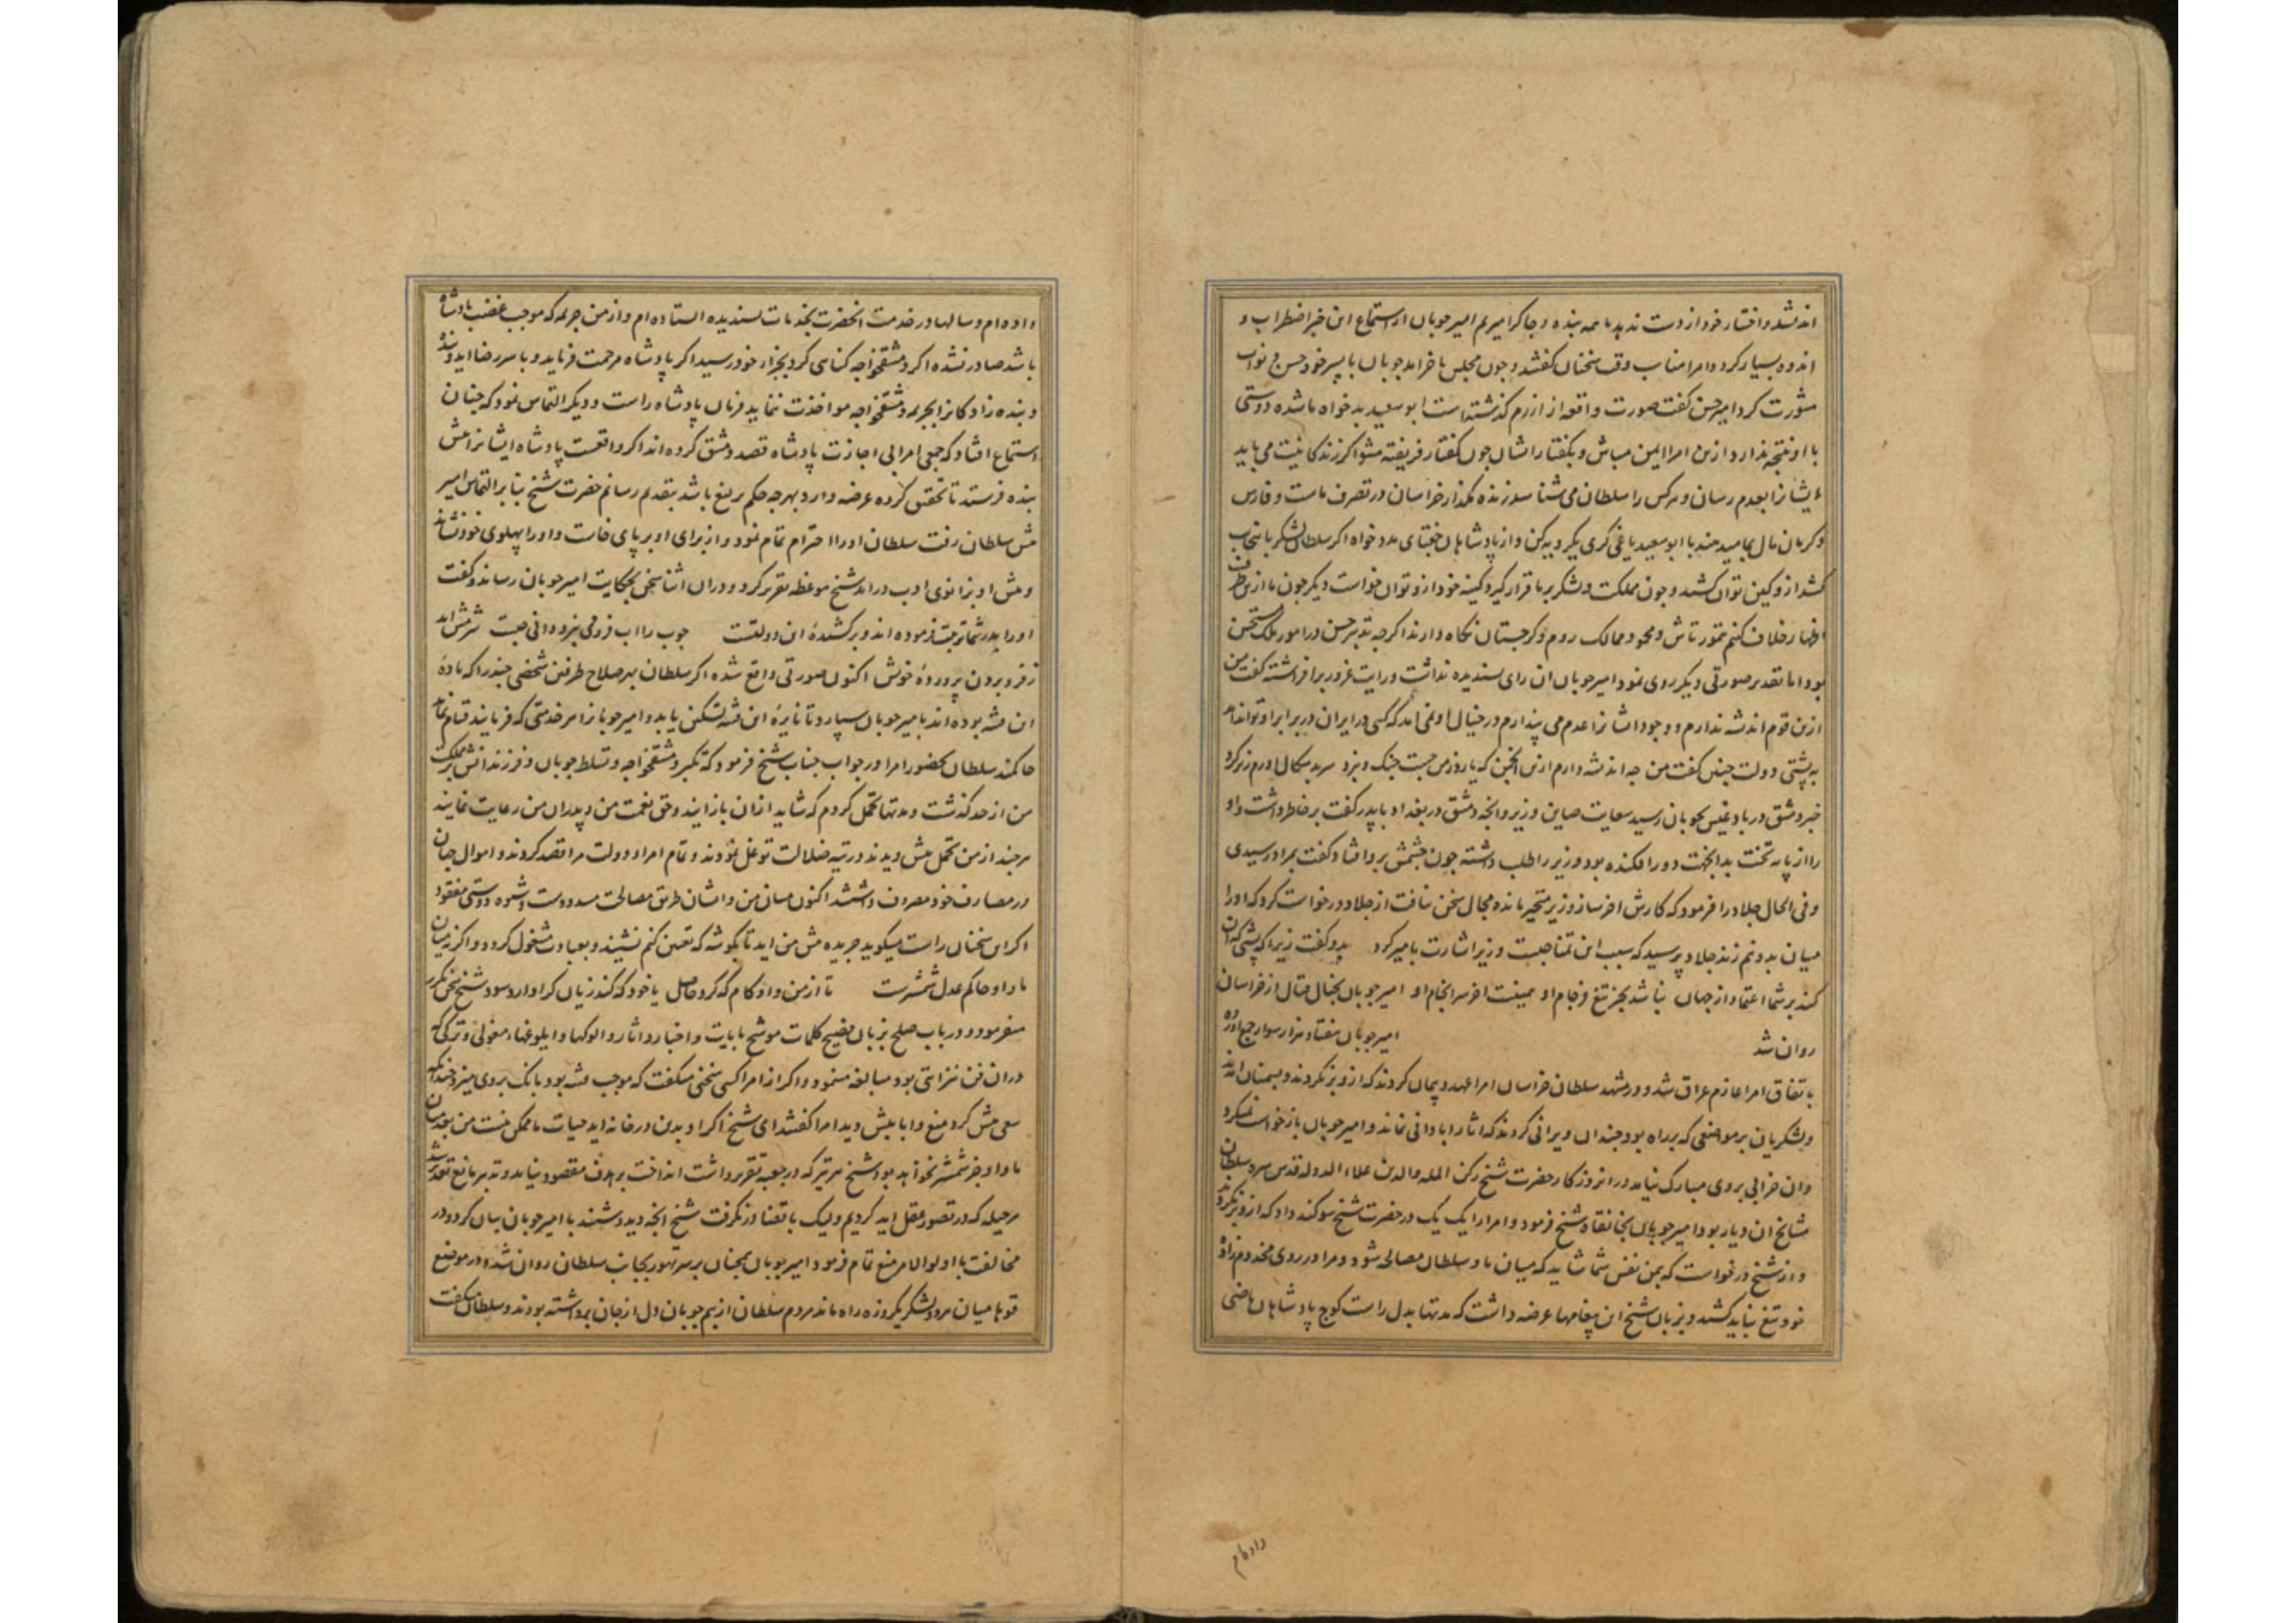 اند نشد و اختیار خود از دست ندید ما همه بنده و چاکر امیریم امیر جوبان از استماع این خبر اضطراب و
اندوه بسیار کرد و امرا مناسب وقت سخنان کفتند و چون مجلس باخر امد جوبان با پسر خود حسن و نواب
مشورت کرد امیر حسن کفت صورت واقعه از ازرم کذشته است ابو سعید بدخواه ما شده دوستی
با او نتیجه ندارد ازین امرا ایمن مباش و بکفتار ایشان چون کفتار فریفته مشو اکر زندکانیت می باید
ایشانرا بعدم رسان و هر کس را سلطان می شناسد زنده مکذار خراسان در تصرف ماست و فارس
و کرمان مال بما میدهند با ابو سعید یاغی کری یکرویه کن و از پادشاهان جغتای مدد خواه اکر سلطان لشکر باینجانب
کشد ازو کین توان کشید و چون مملکت و لشکر بر ما قرار کیرد کینه خود ازو توان خواست دیکر چون ما ازین طرف
اظهار خلاف کنیم تمورتاش و محمود ممالک روم و کرجستان نکاه دارند اکرچه تدبیر حسن در امور ملک مستحسن
بود اما تقدیر صورتی دیکر روی نمود امیر جوبان ان رای پسندیده نداشت و رایت غرور برافراشته کفت من
ازین قوم اندیشه ندارم و وجود ایشانرا عدم می پندارم در خیال او نمی امد که کسی در ایران در برابر او تواند امد
به پشتی دولت چنین کفت من چه اندیشه دارم ازین انجمن که یارد ز من جست جنک و نبرد سر بدسکال اورم زیر کرد
خبر دمشق در بادغیس بجوبان رسید سعایت صاین وزیر و انچه دمشق در بغداد با پدر کفت بر خاطر داشت و او
را از پایه تخت بدانجهت دور افکنده بود وزیر را طلب داشته چون چشمش برو افتاد کفت بمراد رسیدی
و فی الحال جلاد را فرمود که کارش اخر ساز وزیر متحیر مانده مجال سخن نیافت از جلاد درخواست کرد که او را
میان بدو نیم زند جلاد پرسید که سبب این تمنا چیست وزیر اشارت بامیر کرد بدو کفت زیرا که پشتی که ان
کند بر شما اعتماد از جهان نباشد بجز تیغ فرجام او همینست اخر سرانجام او امیر جوبان بخیال قتال از خراسان
روان شد امیر جوبان هفتاد هزار سوار جمع اورده
باتفاق امرا عازم عراق شد و در مشهد سلطان خراسان امرا عهد و پیمان کردند که ازو برنکردند و بسمنان امدند
و لشکریان بر مواضعی که بر راه بود چندان ویرانی کردند که اثار ابادانی نماند و امیر جوبان بازخواست نمیکرد
و ان خرابی بروی مبارک نیامد در انروزکار حضرت شیخ رکن المله والدین علاء الدوله قدس سره سلطان
مشایخ ان دیار بود امیر جوبان بخانقاه شیخ فرمود و امرا را یک یک در حضرت شیخ سوکند داد که ازو برنکردند
و از شیخ درخواست که بیمن نفس شما شاید که میان ما و سلطان مصالحه شود و مرا در روی مخدوم زاده
خود تیغ نباید کشید و بزبان شیخ این پیغامها عرضه داشت که مدتها بدل راست کوچ پادشاهان ماضی
داده ام
داده ام و سالها در خدمت انحضرت بخدمات پسندیده ایستاده ام و از من جریمه که موجب غضب پادشاه
باشد صادر نشده اکر دمشقخواجه کناهی کرد بجزاء خود رسید اکر پادشاه مرحمت فرماید و با سر رضا اید و بنده
و بنده زادکانرا بجریمه دمشقخواجه مواخذت ننماید فرمان پادشاه راست و دیکر التماس نمود که چنان
استماع افتاد که جمعی امرا بی اجازت پادشاه قصد دمشق کرده اند اکر واقعست پادشاه ایشانرا پیش
بنده فرستد تا تحقیق کرده عرضه دارد بهرچه حکم یرلیغ باشد بتقدیم رسانم حضرت شیخ بنا بر التماس امیر
پیش سلطان رفت سلطان او را احترام تمام نمود و از برای او بر پای خاست و او را پهلوی خود نشاند
و پیش او بزانوی ادب درامد شیخ موعظه تقریر کرد و دران اثنا سخن بحکایت امیر جوبان رساند و کفت
او را پدر شما تربیت فرموده اند و برکشیده این دولتست چوب را اب فرو می نبرد دانی چیست شرمش اید
ز فرو بردن پرورده خویش اکنون صورتی واقع شده اکر سلطان بهر صلاح طرفین شخصی چند را که ماده
این فتنه بوده اند بامیر جوبان سپارد تا نایره این فتنه تسکین یابد و امیر جوبانرا هر خدمتی که فرمایند قیام نماید
حاکمند سلطان بحضور امرا در جواب جناب شیخ فرمود که تکبر دمشقخواجه و تسلط جوبان و فرزندانش بر مملکت
من از حد کذشت و مدتها تحمل کردم که شاید ازان باز ایند و حق نعمت من و پدران من رعایت نمایند
هر چند از من تحمل بیش دیدند در تیه ضلالت توغل نمودند و تمام امرا و دولت مرا قصد کردند و اموال جهان
در مصارف خود مصروف داشتند اکنون میان من و ایشان طریق مصالحت مسدودست و شیوه دوستی مفقود
اکر این سخنان راست میکوید جریده پیش من اید تا بکوشه که تعیین کنم نشیند و بعبادت مشغول کردد و اکرنه میان
ما و او حاکم عدل شمشیرست تا از من و او کام که کردد حاصل یا خود که کند زیان کرا دارد سود شیخ سخن مکرر
میفرمود و در باب صلح بزبان فصیح کلمات موشح بایات و اخبار و اثار و الوکها و ایلوغهاء مغولی و ترکی که
دران فن نیز ایتی بود مبالغه مینمود و اکر از امرا کسی سخنی میکفت که موجب فتنه بود بانک بروی میزد چندانکه
سعی بیش کرد منع و ابا بیش دید امرا کفتند ای شیخ اکر او بدین در خانه اید حیات ما ممکن نیست من بعد میان
ما و او جز شمشیر نخواهد بود شیخ هر تیر که در جعبه تقریر داشت انداخت بر هدف مقصود نیامد و تدبیر مانع تقدیر نشد
هر حیله که در تصور عقل اید کردیم ولیک با قضا در نکرفت شیخ انچه دید و شنید با امیر جوبان بیان کرد و در
مخالفت با اولو الامر منع تمام فرمود امیر جوبان همچنان بر سر تهور بجانب سلطان روان شد و در موضع
قوها میان هر دو لشکر یکروزه راه ماند مردم سلطان از بیم جوبان دل از جان برداشته بودند و سلطان میکفت